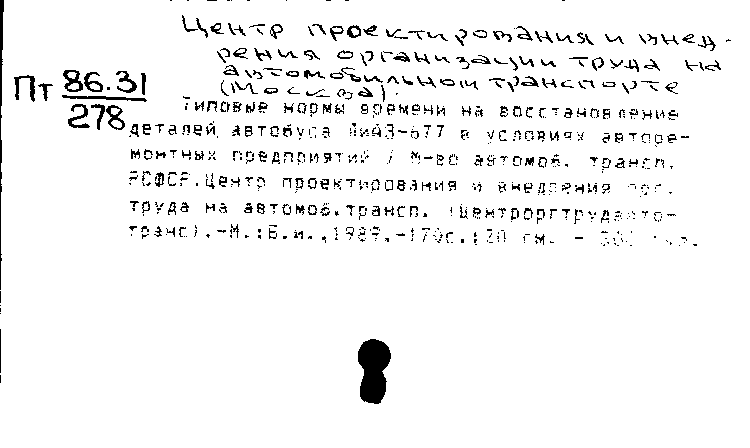 Центр проектирования и внед-
рения организации труда на
автомобильном транспорте
(Москва).
Пт 86.31
278
Типовые нормы времени на восстановление
деталей автобуса ЛиАЗ-677 в условиях авторе-
монтных предприятий / М-во автомоб. трансп.
РСФСР.Центр проектирования и внедрения орг.
труда на автомоб.трансп. (Центроргтрудавто-
транс).-М.:Б.и.,1989.-170с.;20 см. -